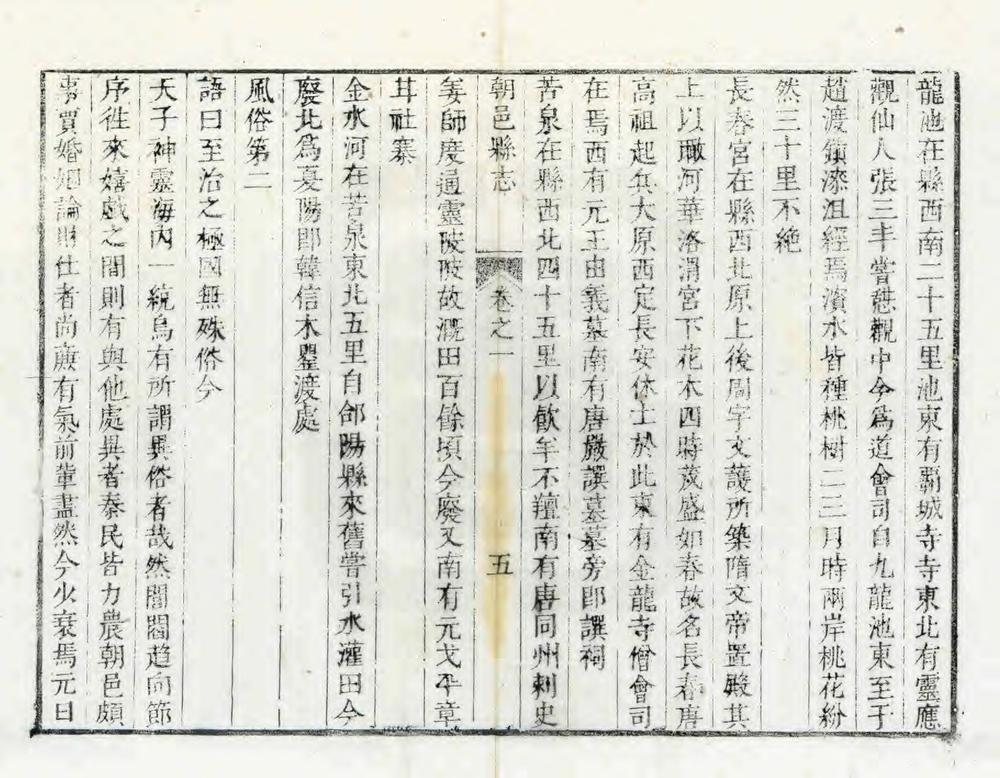 龍池在縣西南二十五里池東有覇城寺寺東北有靈應
觀仙人張三丰嘗憇觀中今爲道會司自九龍池東至于
趙渡鎮漆沮經焉濱水皆種桃樹二三月時兩岸桃花紛
然三十里不絶
長春宮在縣西北原上後周宇文護所築隋文帝置殿其
上以瞰河華洛渭宮下花木四時茂盛如春故名長春唐
高祖起兵大原西定長安休士於此東有金龍寺僧會司
在焉西有元王由義墓南有唐嚴譔墓墓旁郎譔祠
苦泉在縣西北四十五里以飮羊不羶南有唐同州刺史
朝邑縣志
卷之一
五
姜師度通靈陂陂故漑田百餘頃今廢又南有元戈平章
耳社寨
金水河在苦泉東北五里自郃陽縣來舊嘗引水灌田今
廢北爲夏陽郎韓信木罌渡處
風俗第二
語曰至治之極國無殊俗今
天子神靈海内一統烏有所謂異俗者哉然閭閻趋向節
序徃來嬉戲之間則有與他處異者秦民皆力農朝邑頗
事賈婚姻論財仕者尚亷有氣前輩盡然今少衰焉元日